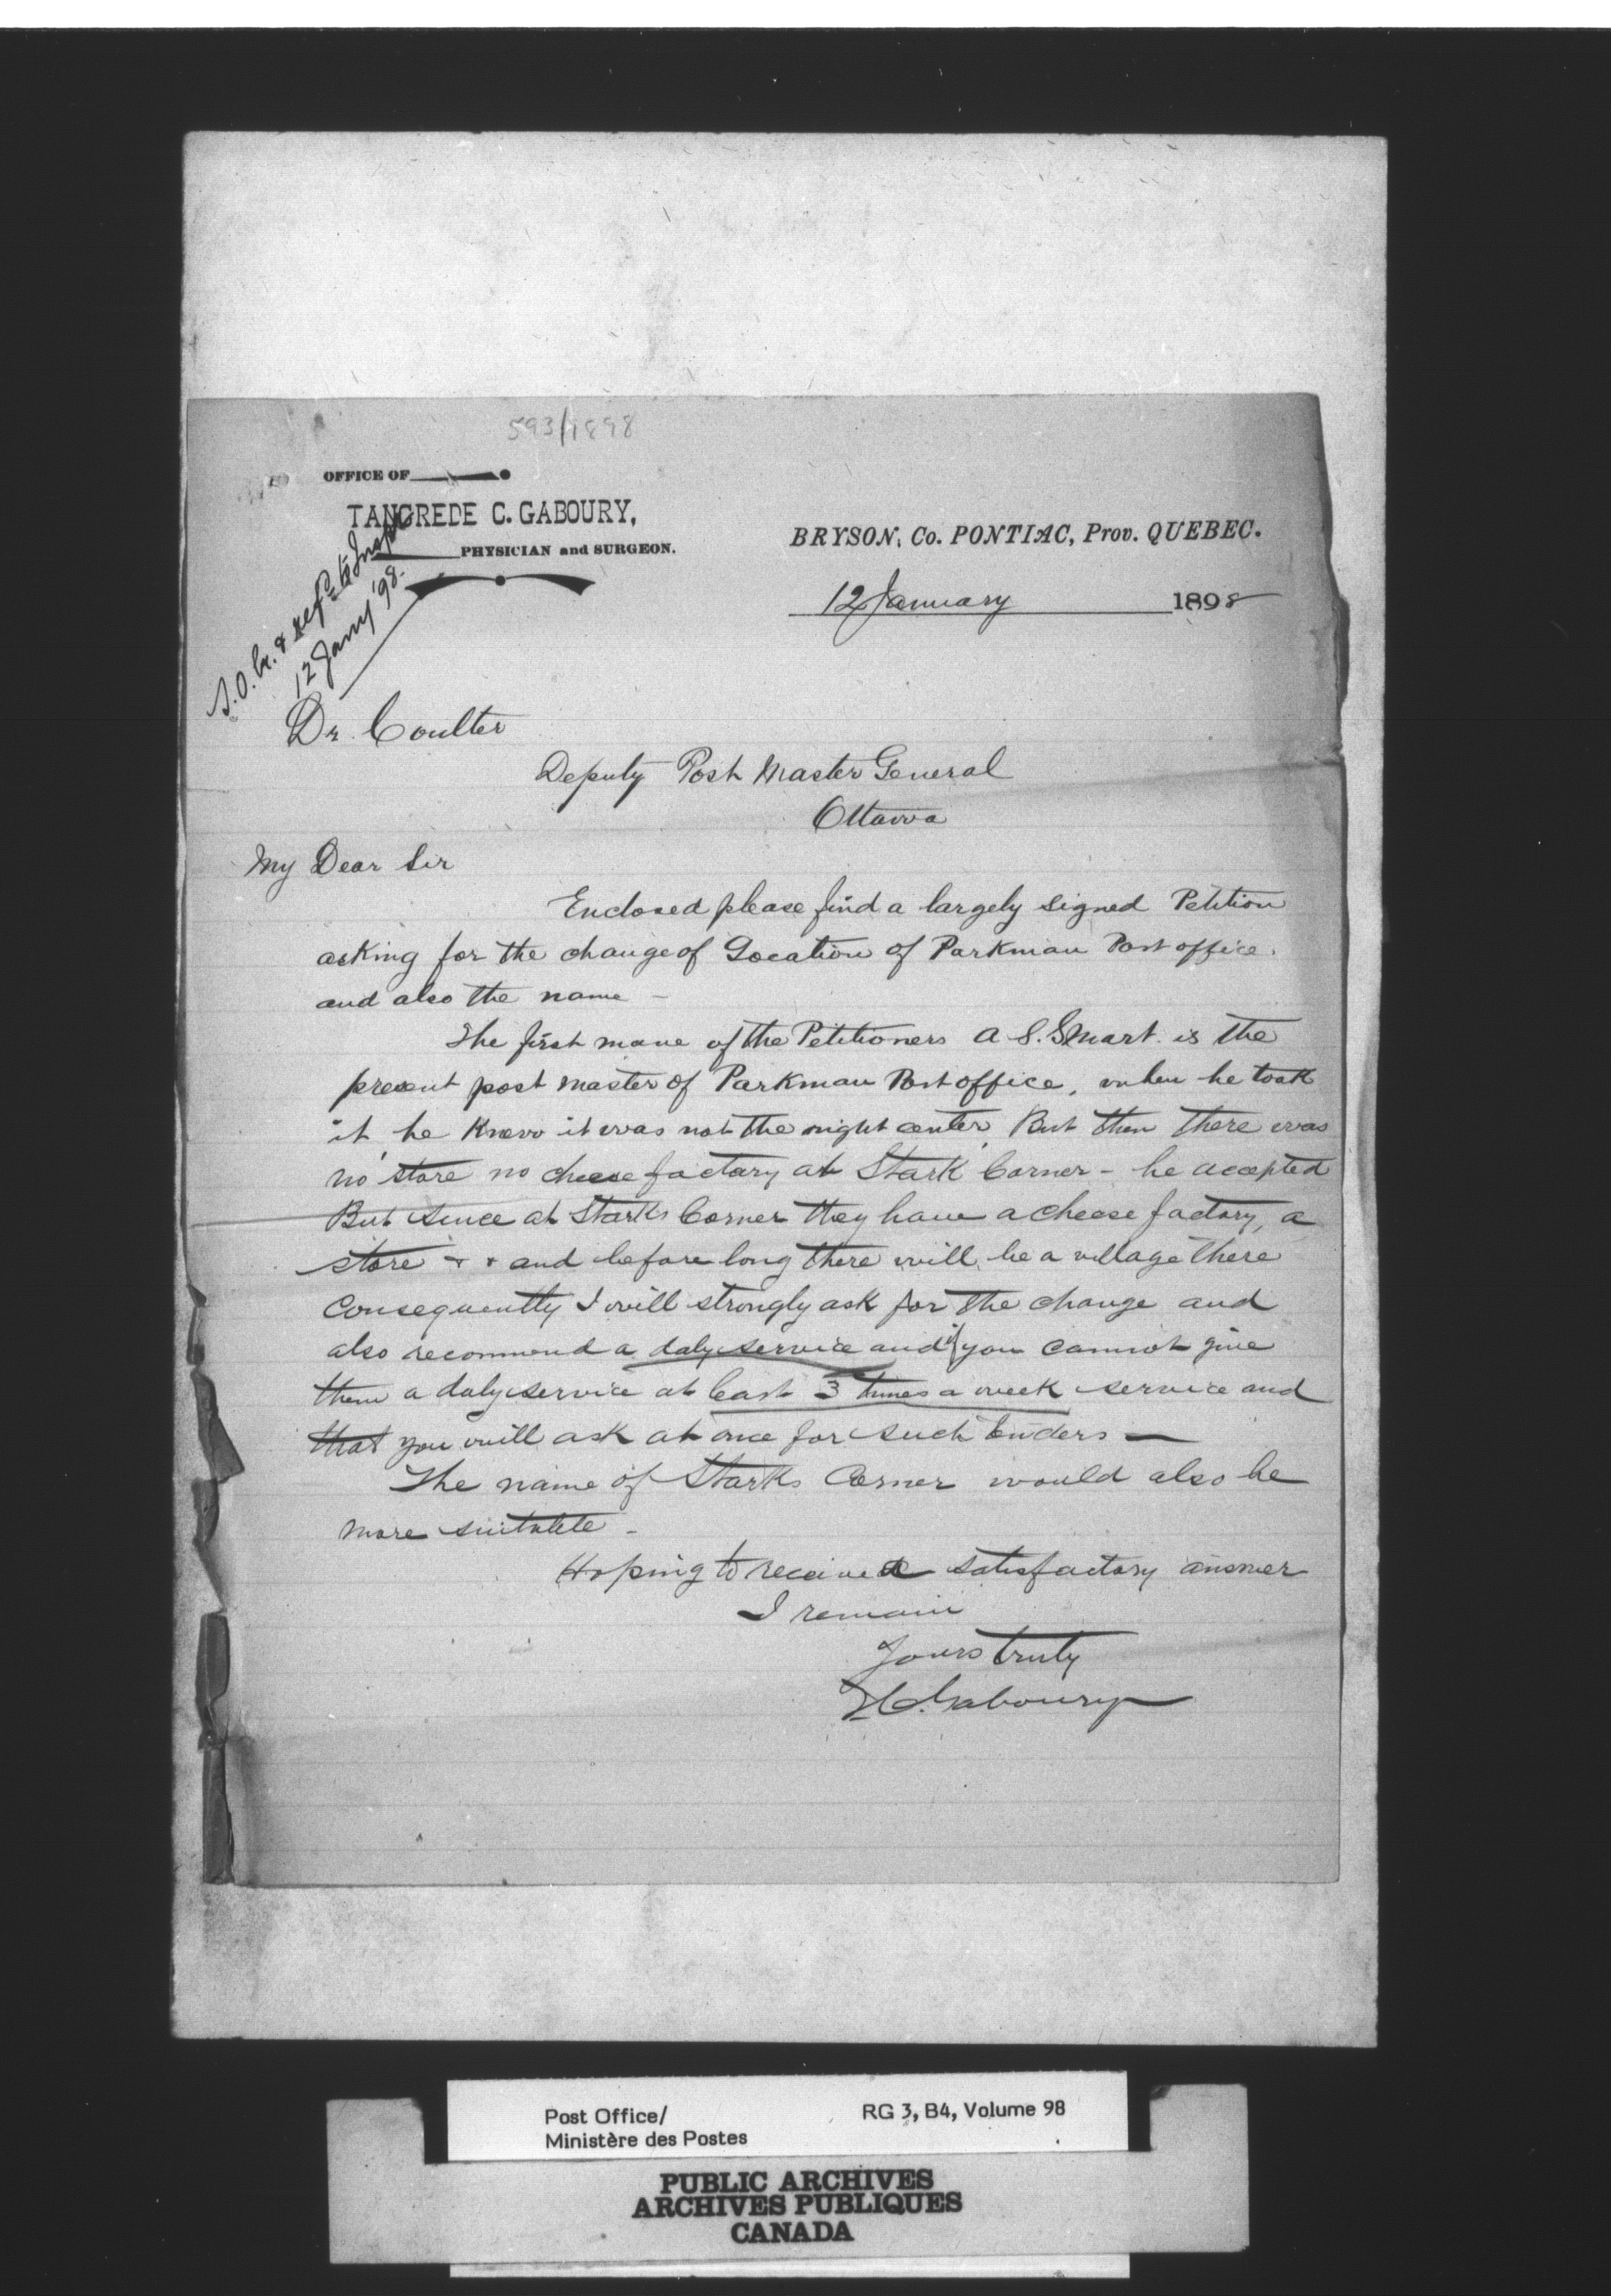 593/1898
OFFICE OF
TANCREDE C. GABOURY,
PHYSICIAN and SURGEON.
BRYSON, Co. PONTIAC, Prov. QUEBEC.
12 January 1898
& refd to Inspr
12 Jany '98.
Dr. Coulter
Deputy Post Master General
Ottawa
My Dear Sir
Enclosed please find a largely signed Petition
asking for the change of Location of Parkman Post office.
and also the name –
The first mane of the Petitioners A S. Smart. is the
present post master of Parkman Post office, when he took
it, he Knew it was not the right center, But then there was
no store no cheese factory at Stark Corner – he accepted
But since at Starks Corner they have a cheese factory, a
store + + and before long there will be a village there
Consequently I will strongly ask for the change and
also recommend a daly service and if you cannot give
them a daly service at least 3 times a week service and
that you will ask at once for such tenders —
The name of Starks Corner would also be
more suitable –
Hoping to receive a satisfactory answer
I remain
Yours truly
T.C. Gaboury
Post Office/
Ministère des Postes
RG 3, B4, Volume 98
PUBLIC ARCHIVES
ARCHIVES PUBLIQUES
CANADA